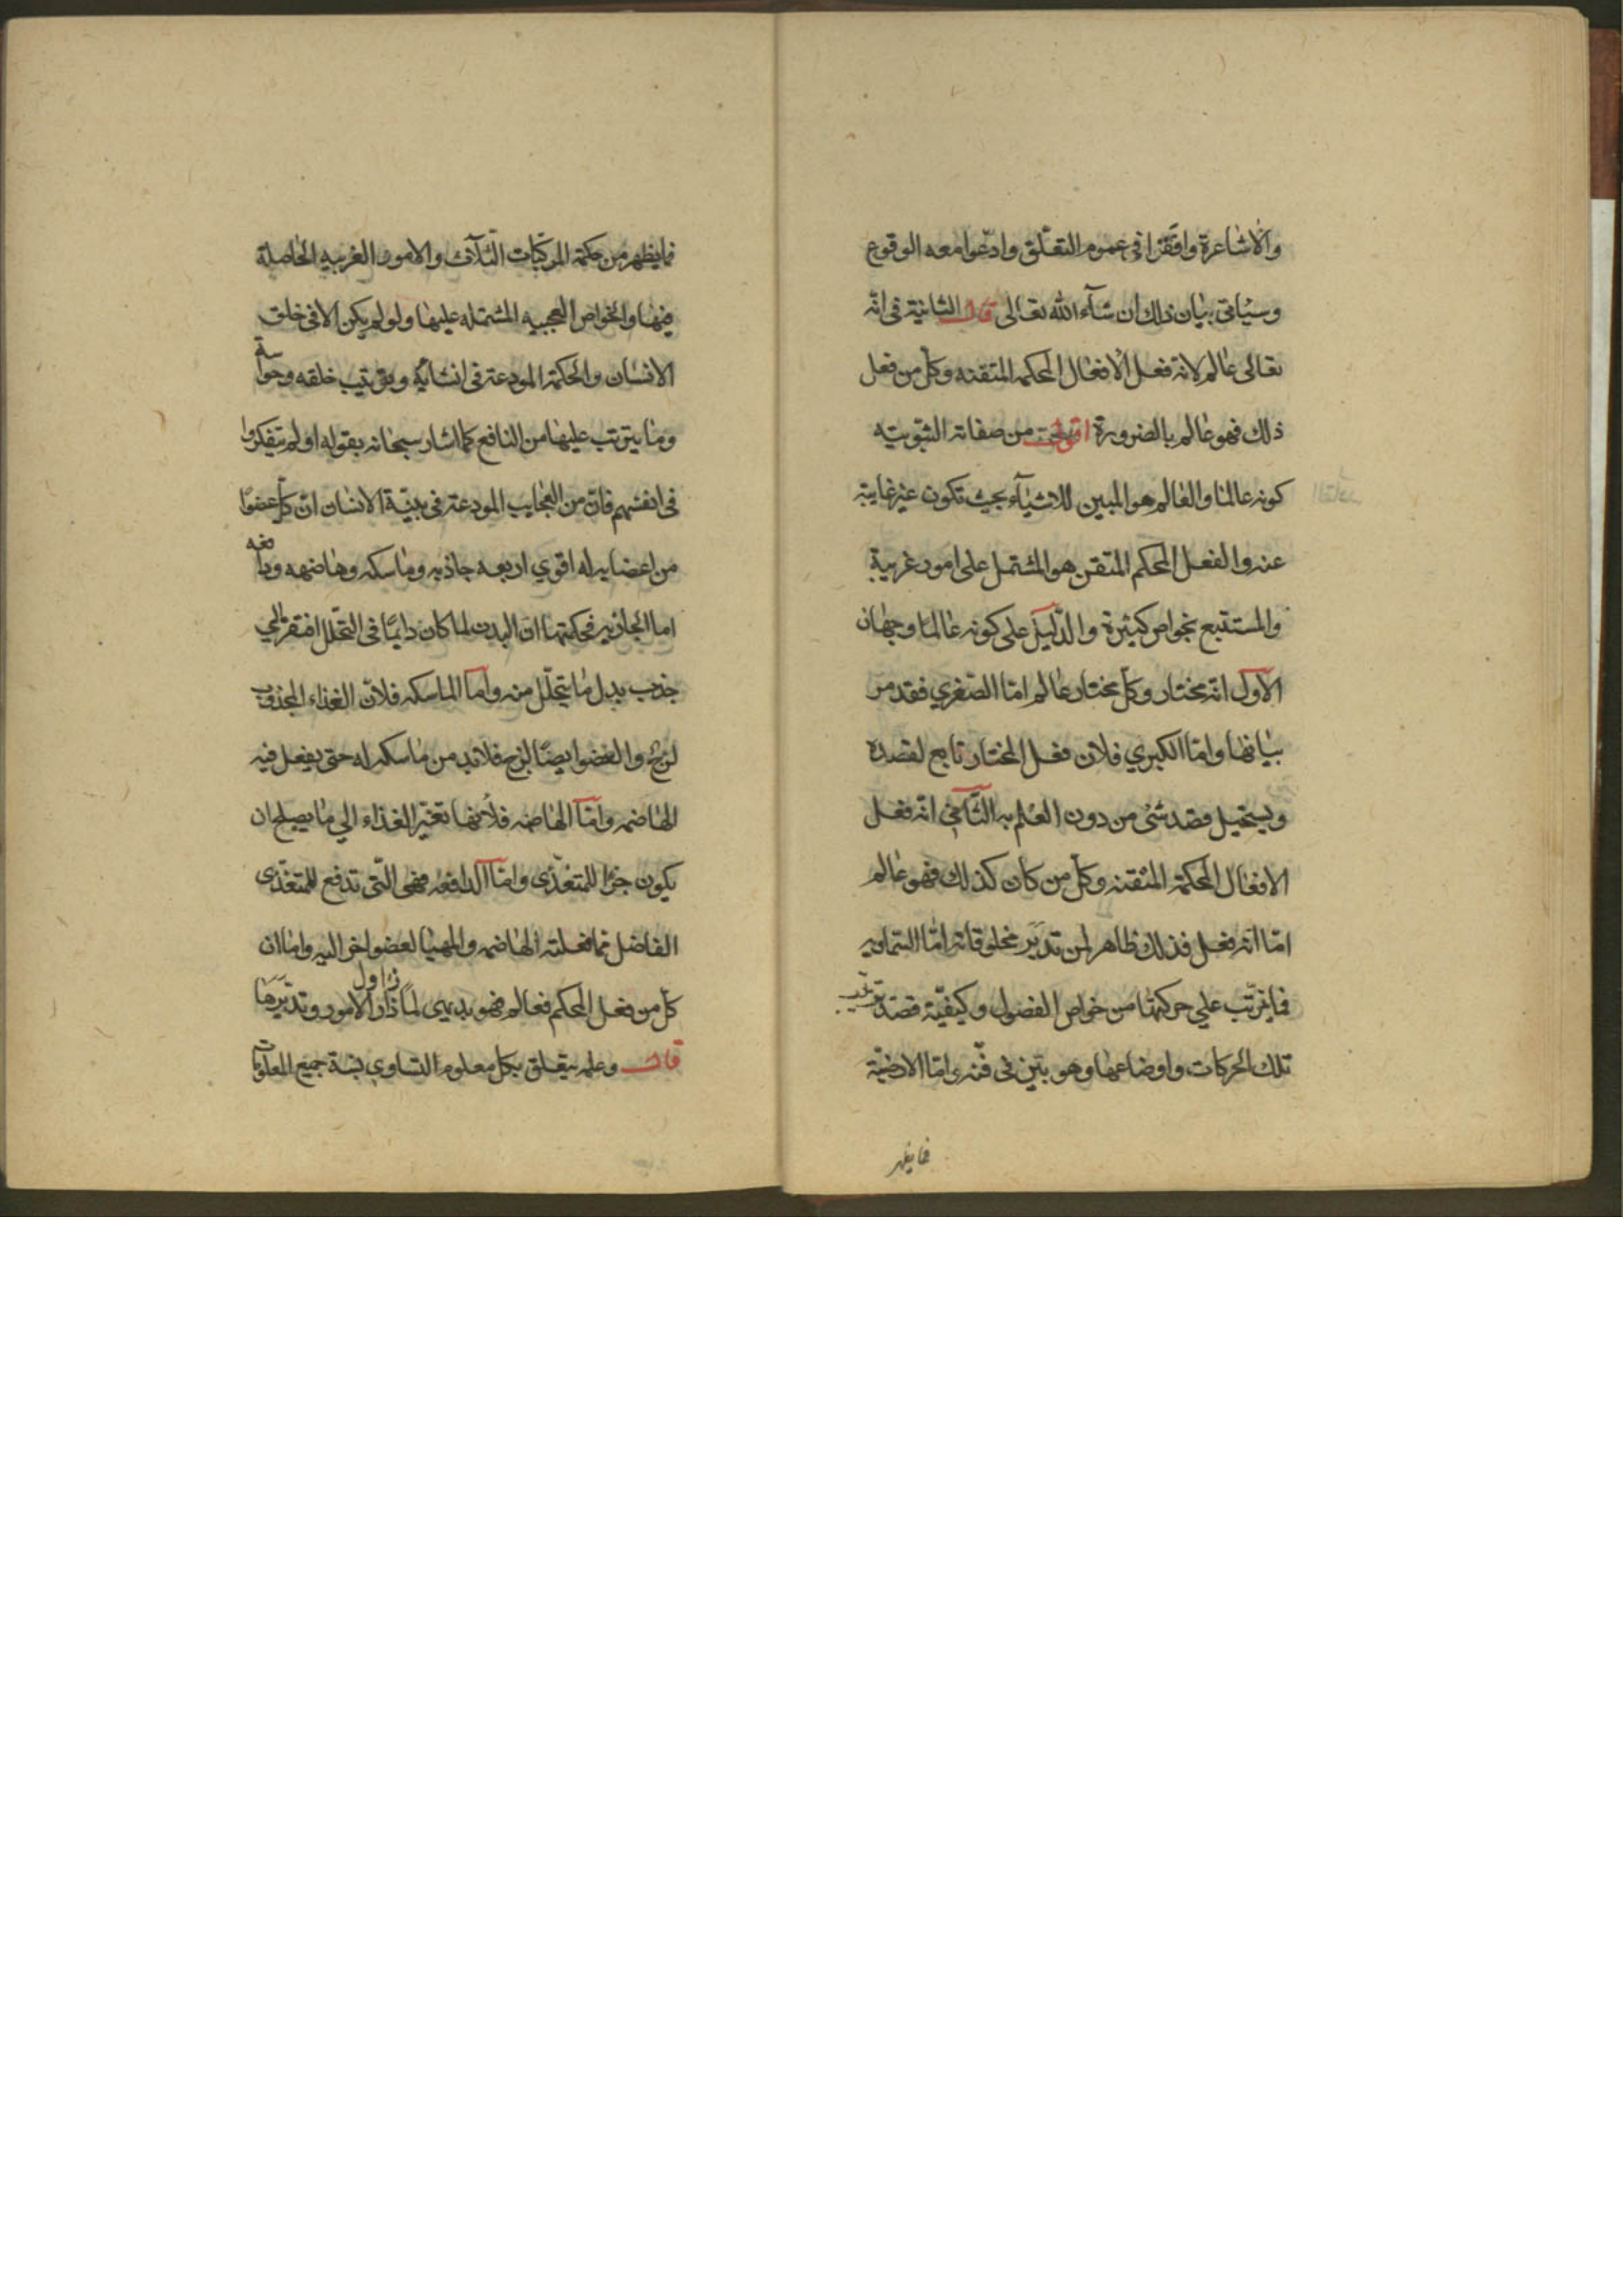 والاشاعرة وافقوا في عموم التعلّق وادّعوا معه الوقوع
وسيأتي بيان ذلك ان شآء الله تعالى قال الثانية فى انّه
تعالى عالم لانه فعل الافعال المحكمه المتقنه وكل من فعل
ذلك فهو عالم بالضرورة اقول من صفاته الثبوتيه
كونه عالما والعالم هو المبين للاشيآء بحيث تكون غير غايبة
عنه والفعل المحكم المتقن هو المشتمل على امور غريبة
والمستتبع بخواص كثيرة والدّليل على كونه عالما وجهان
الاول انّه مختار وكل مختار عالم امّا الصّغري فقد مر
بيانها وامّا الكبري فلان فعل المختار تابع لقصده
ويستحيل قصد شئ من دون العلم به الثّانى انّه فعل
الافعال المحكمة المتقنه وكلّ من كان كذلك فهو عالم
امّا انّه فعل فذلك ظاهر لمن تدبّر مخلوقاته امّا السّماويه
فما يترتّب علي حركتها من خواص الفصول وكيفيّة
تلك الحركات واوضاعها وهو بيّن فى فنّه وامّا الارضيّة
فما يظهر
فما يظهر من حكمة المركّبات الثّلاث والامور الغريبه الحاصلة
فيها والخواص العجيبه المشتمله عليها ولو لم يكن الا فى خلق
الانسان والحكمة المودعة فى انشائه وترتيب خلقه وحواسه
وما يترتب عليها من المنافع كما اشار سبحانه بقوله اولم يتفكروا
فى انفسهم فانّ من العجايب المودعة فى بنيّة الانسان انّ كلّ عضو
من اعضايه له اقوي اربعه جاذبه وماسكه وهاضمه ودافعه
اما الجاذبه فحكمتها ان البدن لما كان دايمًا فى التحلّل افتقر الي
جذب بدل ما يتحلّل منه وامّا الماسكه فلانّ الغذاء المجذوب
لزج والعضو ايضًا لزج فلابد من ماسكه له حتى يفعل فيه
الهاضمه وامّا الهاضمه فلأنها تغيّر الغذاء الي ما يصلح ان
يكون جزا للمتغذّى وامّا الدافعه فهى الّتى تدفع للمتغذّى
الفاضل مما فعلته الهاضمه والمهيا لعضو اخر اليه واما ان
كل من فعل المحكم فعالم فهو بديهى لما زاول الامور وتدبّرها
قال وعلمه يتعلق بكل معلوم لتساوي نسبة جميع المعلومات